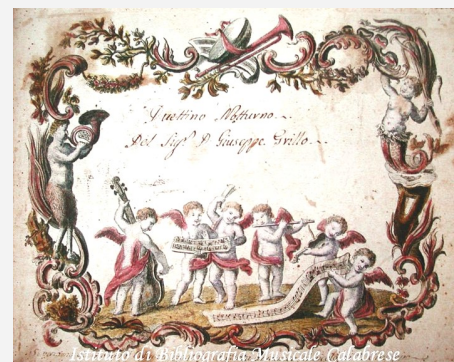 Duettino Notturno
Del Sigr D Giuseppe Grillo
Istituto di Bibliografia Musicale Calabrese